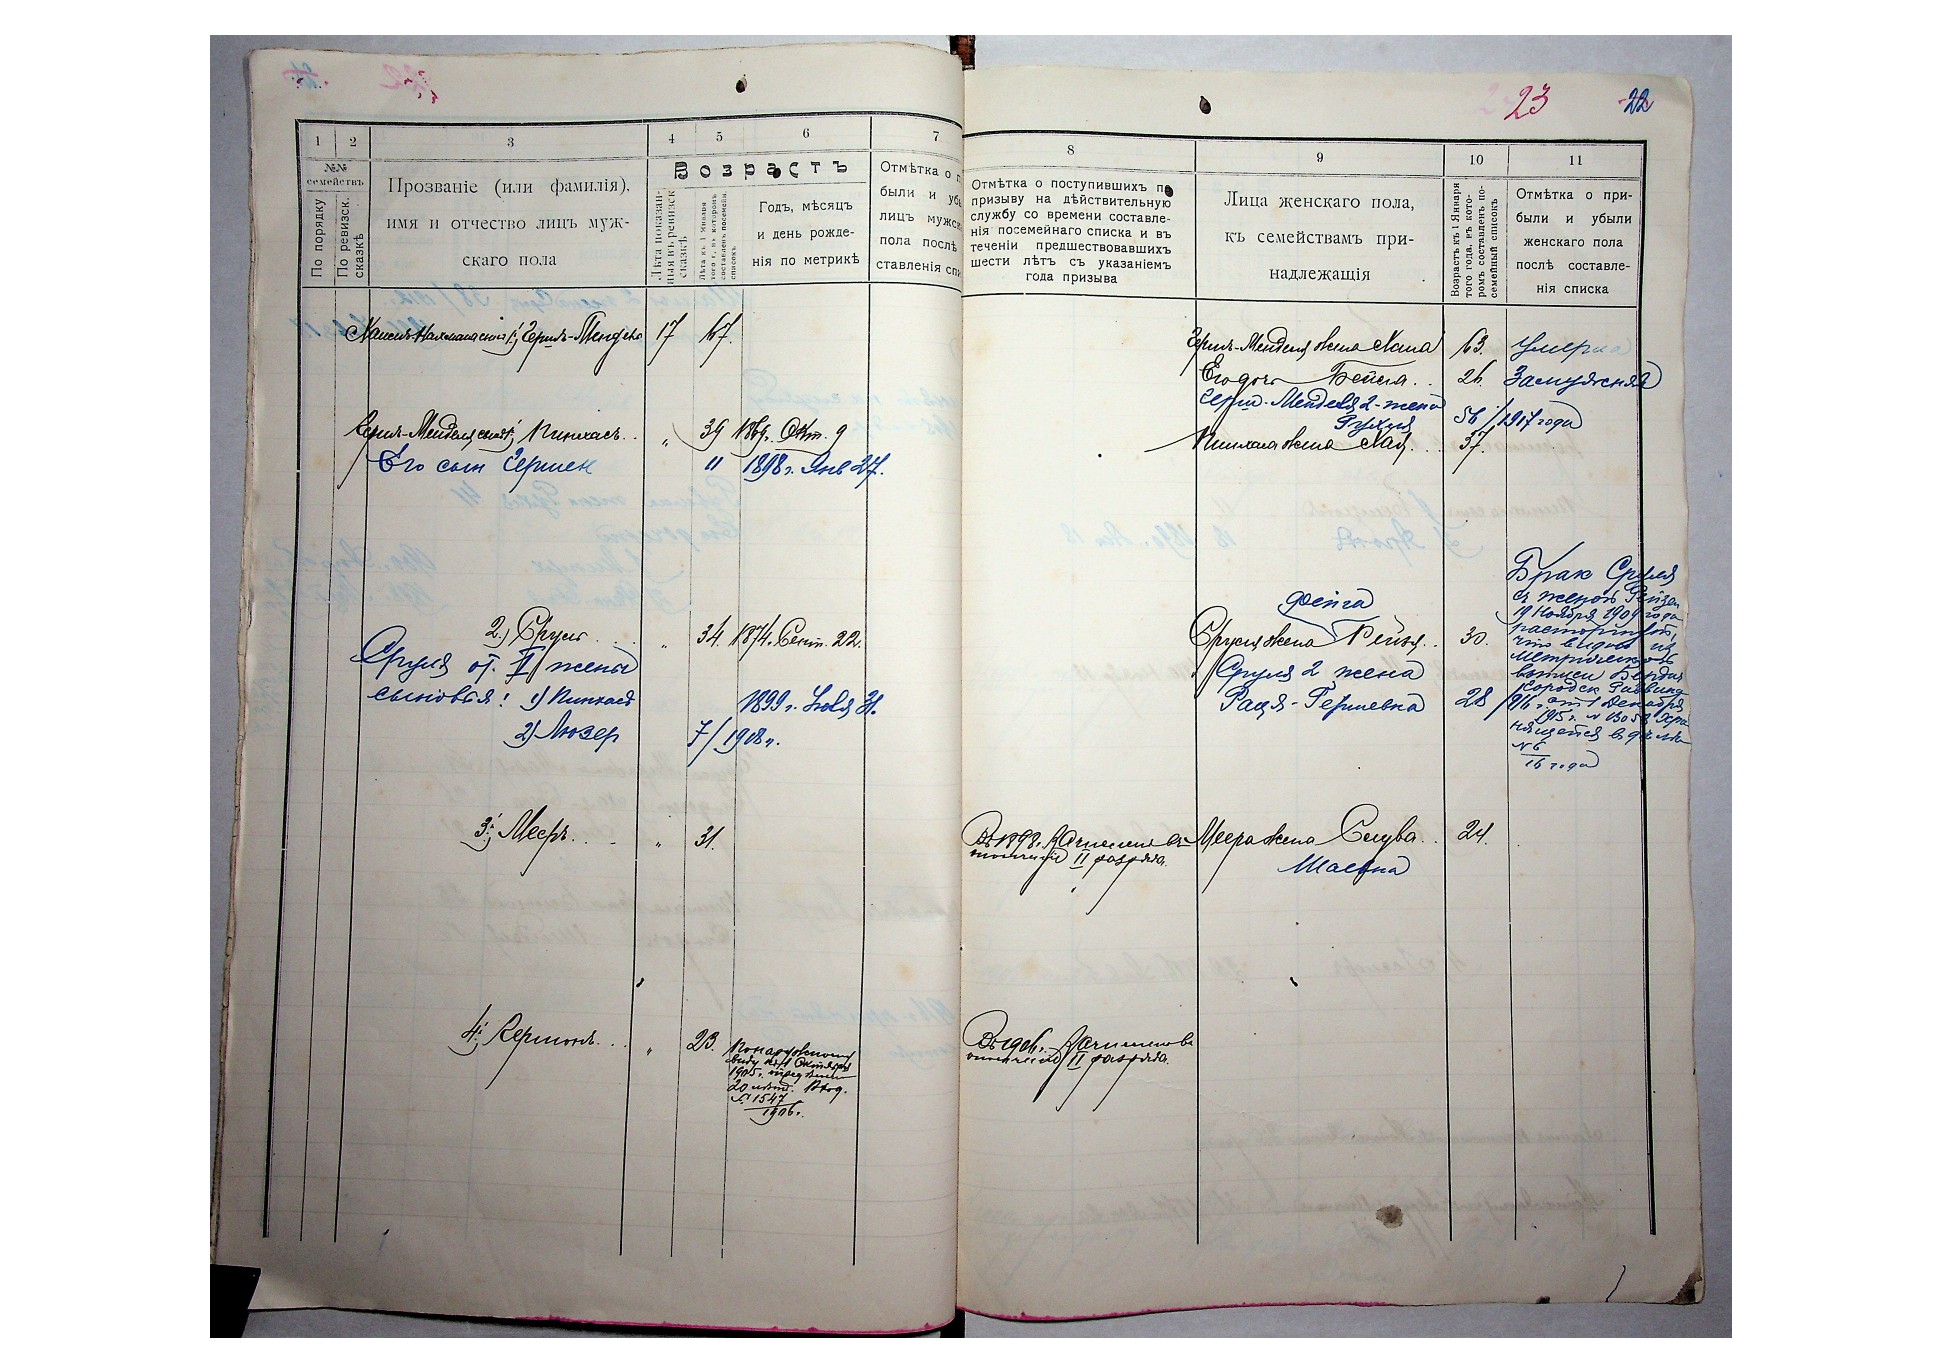 23 22
1 2 3 4 5 6 7
№№
семействъ
По порядку
По ревизск.
сказкѣ
Прозваніе (или фамилія),
имя и отчество лицъ муж-
скаго пола
Возрастъ
Лѣта показан-
ныя въ ревизск
сказкѣ
Лѣта къ 1 Января
того г., въ которомъ
составленъ посемейн.
списокъ.
Годъ, мѣсяцъ
и день рожде-
нія по метрикѣ
Отмѣтка о п
были и убы
лицъ мужск
пола послѣ
ставленія спи
17 67.
Герш-Менделя сынъ 1, Пинхасъ „ 39 1869. Окт. 9
Его сын Гершек " 1898 г. Янв 27.
2.) Сруль „ 34. 1874. Сент. 22.
Сруля от II жены
сыновья: 1) Пинхас 1899 г. Июля 31.
2) Лозер 7/1908 г.
3. Мееръ „ 31.
4. „ 23. По наружному
виду къ 1 Октября
1905 г.
20 лѣтъ. Вход.
№ 1547
1906 г.
8 9 10 11
Отмѣтка о поступившихъ по
призыву на дѣйствительную
службу со времени составле-
нія посемейнаго списка и въ
теченіи предшествовавшихъ
шести лѣтъ съ указаніемъ
года призыва
Лица женскаго пола,
къ семействамъ при-
надлежащія
Возрастъ къ 1 Января
того года, въ кото-
ромъ составленъ по-
семейный списокъ
Отмѣтка о при-
были и убыли
женскаго пола
послѣ составле-
нія списка
Герш-Менделя жена Хана 63. Умерла
Его дочь Бейла 26. Замужняя
Герш-Менделя 2-жена
Рухля 56/1917 года
Пинхаса жена Хая 37.
Фейга
Сруля жена Рейзя 30.
Сруля 2 жена
Рация-Гершевна 28/916
Брак Сруля
с женой Рейзей
19 Ноября 1909 года
расторгнут,
что видно из
Метрической
выписи Бердич
Городск Раввина
от 1 Декабря
1915 г. № 3058 хра
нящейся в деле
№ 6
16 года
Въ 1898 г. зачисленъ въ
ополченіе II разряда.
Меера жена Слува 24.
Шаевна
Въ 1906 г. зачисленъ въ
ополченіе II разряда.